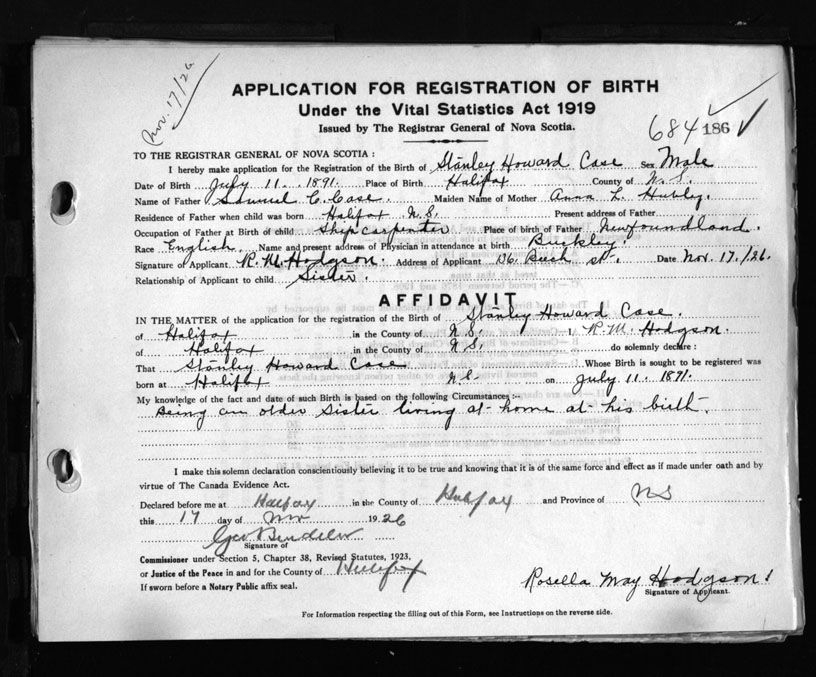 Nov. 17/26
APPLICATION FOR REGISTRATION OF BIRTH
Under the Vital Statistics Act 1919
Issued by The Registrar General of Nova Scotia.
684 186
TO THE REGISTRAR GENERAL OF NOVA SCOTIA :
I hereby make application for the Registration of the Birth of Stanley Howard Case Sex Male
Date of Birth July 11. 1891. Place of Birth Halifax County of N.S.
Name of Father Samuel C. Case. Maiden Name of Mother Anna L. Hubley.
Residence of Father when child was born Halifax N.S. Present address of Father
Occupation of Father at Birth of child Shipcarpenter Place of birth of Father Newfoundland.
Race English. Name and present address of Physician in attendance at birth Buckley.
Signature of Applicant R. M. Hodgson. Address of Applicant St. Date Nov. 17./26.
Relationship of Applicant to child Sister.
AFFIDAVIT
IN THE MATTER of the application for the registration of the Birth of Stanley Howard Case.
of Halifax in the County of N.S. I, R. M. Hodgson.
of Halifax in the County of N.S. do solemnly declare :
That Stanley Howard Case Whose Birth is sought to be registered was
born at Halifax N.S. on July 11. 1891.
My knowledge of the fact and date of such Birth is based on the following Circumstances :-
Being an older Sister living at home at his birth.
I make this solemn declaration conscientiously believing it to be true and knowing that it is of the same force and effect as if made under oath and by
virtue of The Canada Evidence Act.
Declared before me at Halifax in the County of Halifax and Province of NS
this 17 day of Nov 1926
Geo
Signature of
Commissioner under Section 5, Chapter 38, Revised Statutes, 1923,
or Justice of the Peace in and for the County of Halifax
If sworn before a Notary Public affix seal.
Rosella May Hodgson.
Signature of Applicant.
For Information respecting the filling out of this Form, see Instructions on the reverse side.